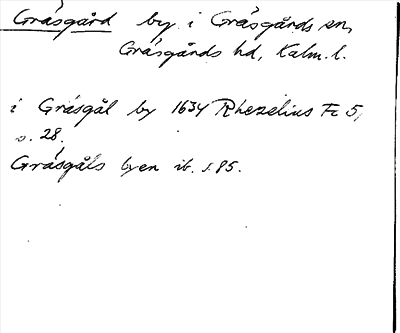 Gräsgård by i Gräsgårds sn,
Gräsgårds hd, Kalm. l.
i Gräsgål by 1634 Rhezelius Fc 5,
s. 28.
Gräsgåls byen ib. s. 85.